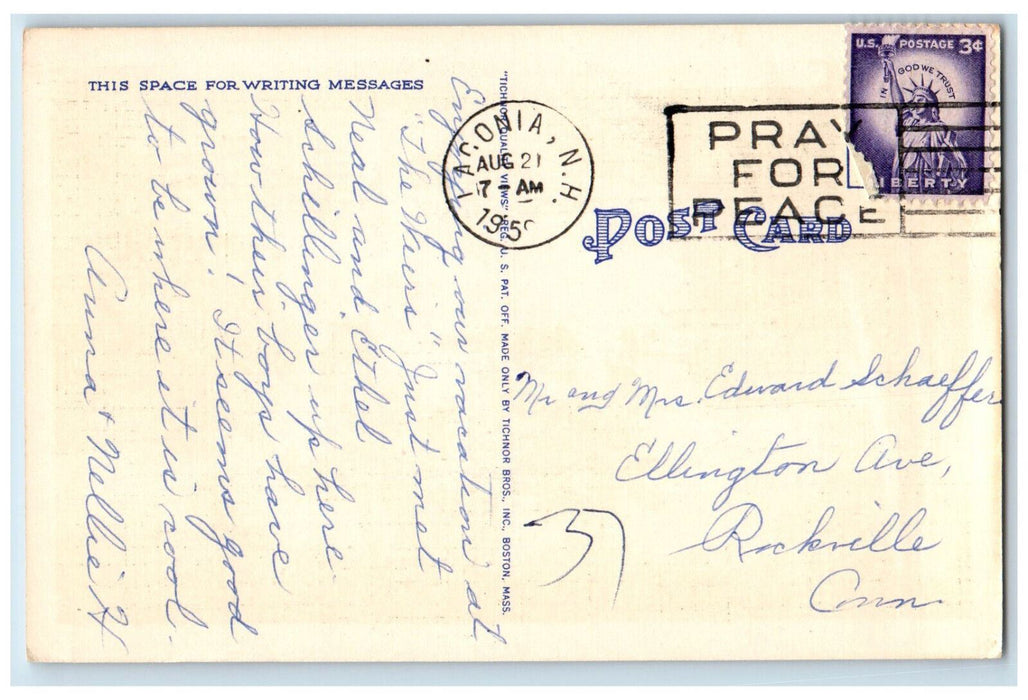 THIS SPACE FOR WRITING MESSAGES
Enjoying our vacation at
"The Weirs" Just met
Neal and Ethel
Schillenger up here
How their boys have
grown! It seems good
to be where it is cool.
Anna + Nellie H
"TICHNOR QUALITY VIEWS" REG. U. S. PAT. OFF. MADE ONLY BY TICHNOR BROS., INC., BOSTON, MASS.
LACONIA, N.H.
AUG 21
7 AM
PRAY
FOR
PEACE
U.S. POSTAGE 3¢
IN GOD WE TRUST
LIBERTY
POST CARD
Mr and Mrs. Edward Schaeffer
Ellington Ave,
Rockville
Conn
37